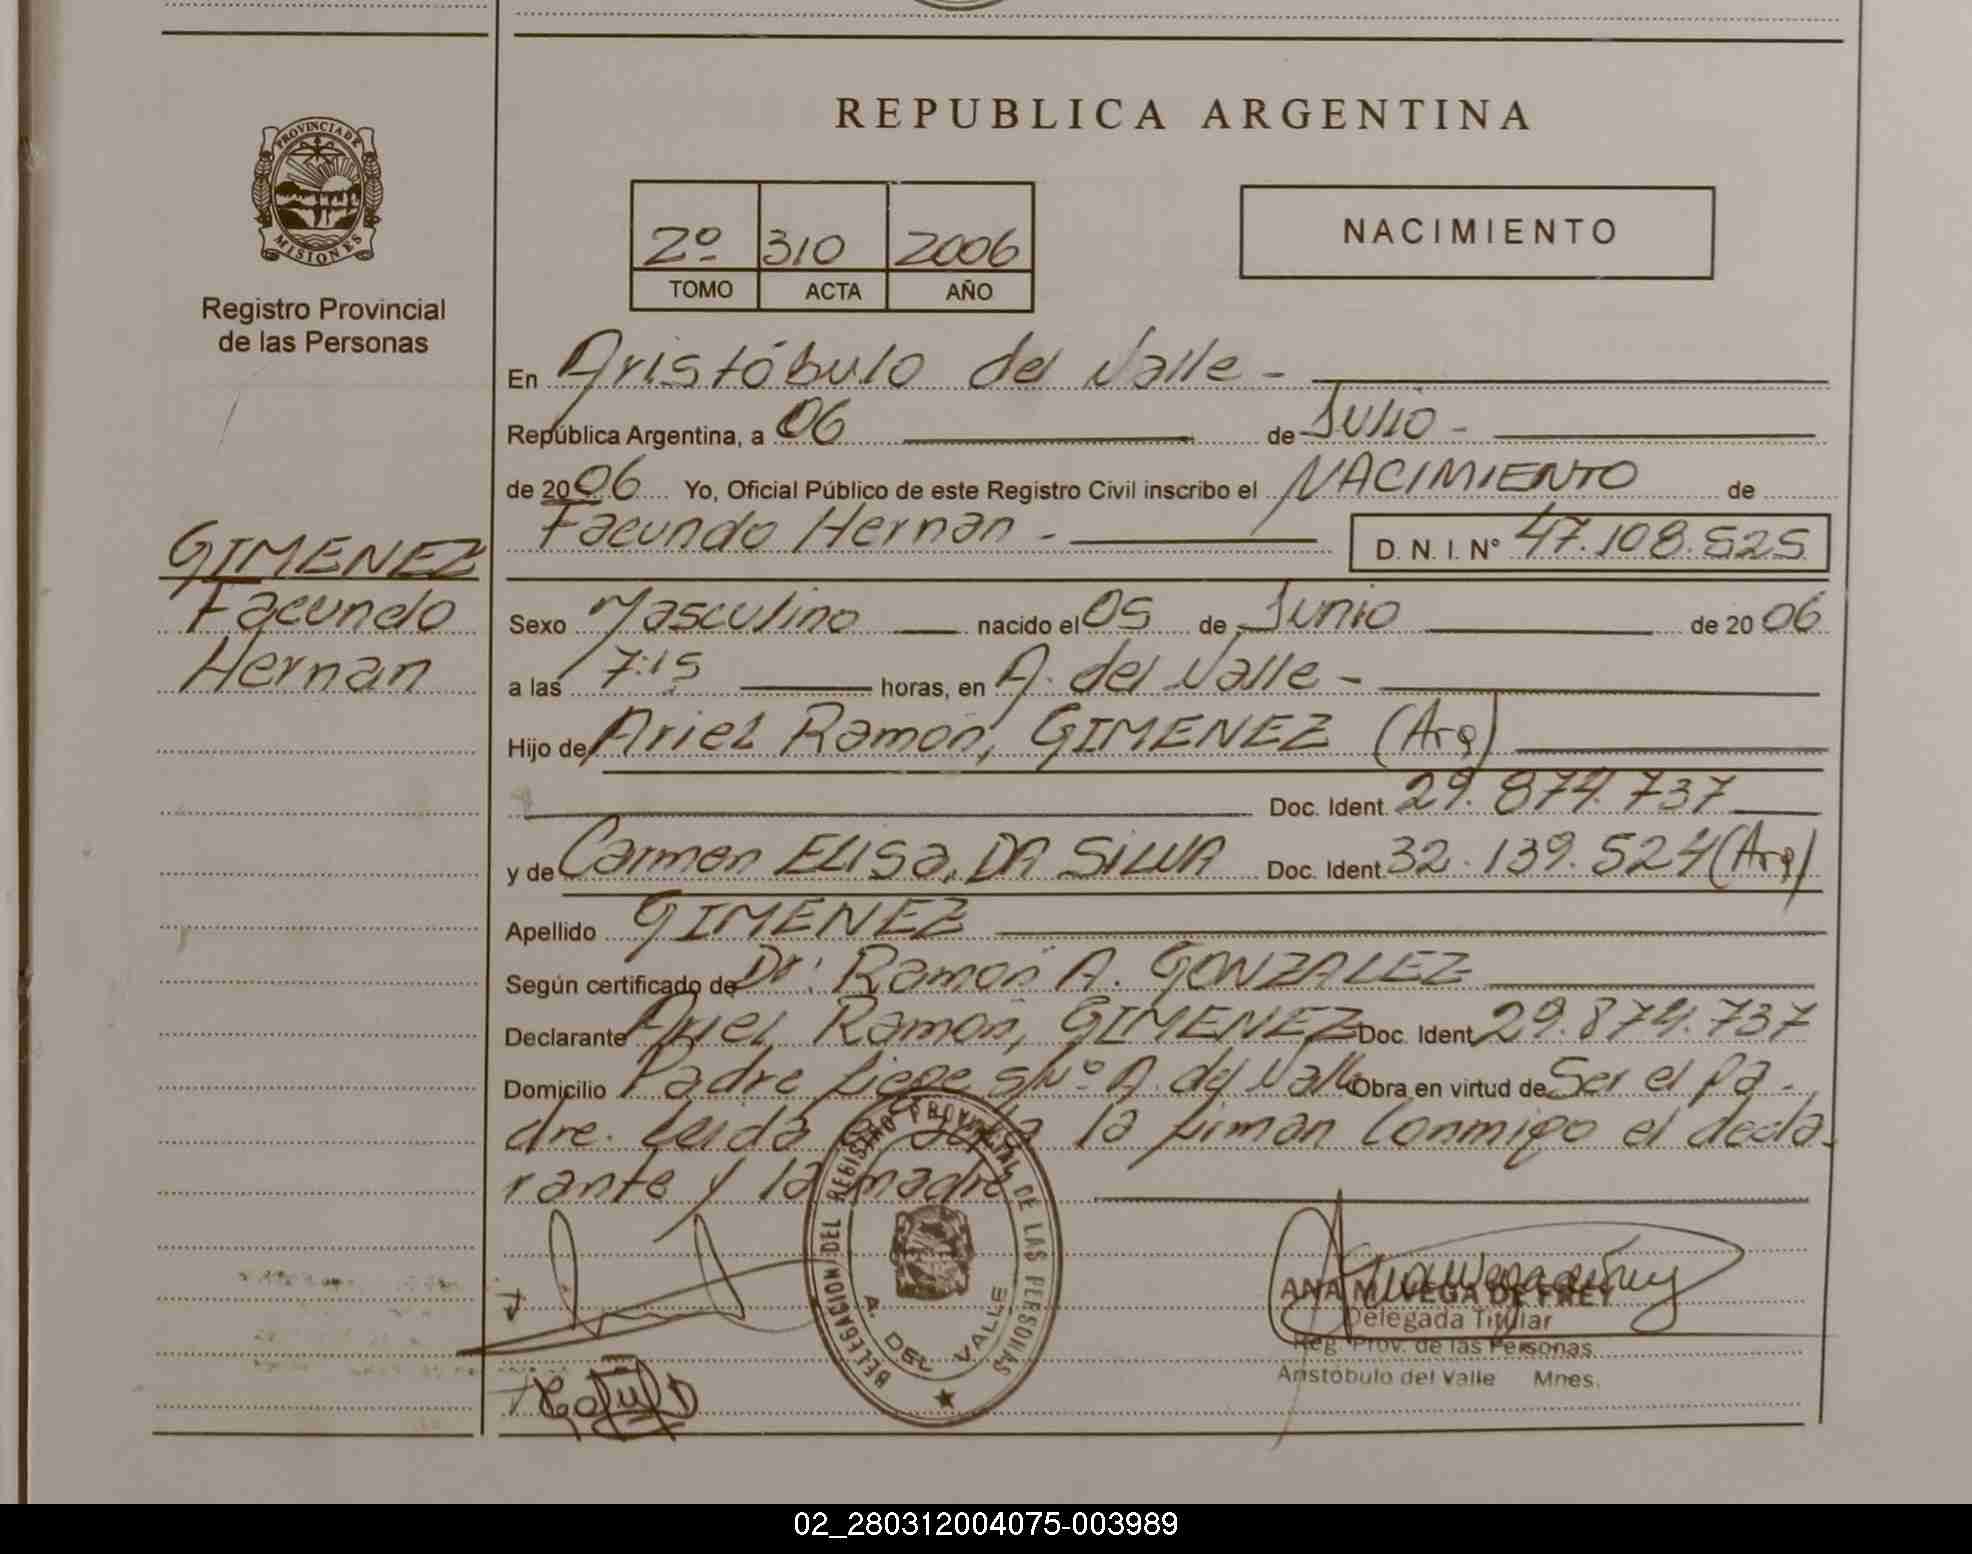 REPUBLICA ARGENTINA
PROVINCIA DE
MISIONES
Registro Provincial
de las Personas
2º 310 2006
TOMO ACTA AÑO
NACIMIENTO
En Aristóbulo del Valle -
República Argentina, a 06 de Julio -
de 2006 Yo, Oficial Público de este Registro Civil inscribo el NACIMIENTO de
Facundo Hernan - D. N. I. Nº 47.108.525
GIMENEZ
Facundo
Hernan
Sexo Masculino nacido el 05 de Junio de 2006
a las 7:15 horas, en A. del Valle -
Hijo de Ariel Ramón, GIMENEZ (Arg)
Doc. Ident. 29.874.737
y de Carmen ELISa, DA SILVA Doc. Ident. 32.139.524 (Arg)
Apellido GIMENEZ
Según certificado de Dr: Ramón A. GONZALEZ
Declarante Ariel Ramón, GIMENEZ Doc. Ident. 29.874.737
Domicilio Padre S/Nº A. del Valle Obra en virtud de Ser el pa-
dre. Leída la firman conmigo el decla-
rante y la madre
DELEGACION DEL REGISTRO PROVINCIAL DE LAS PERSONAS
A. DEL VALLE
ANA M. VEGA DE FREY
Delegada Titular
Reg. Prov. de las Personas
Aristóbulo del Valle Mnes.
02_280312004075-003989